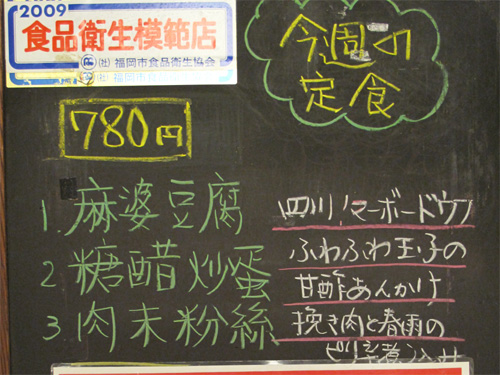 2009
食品衛生模範店
(社)福岡市食品衛生協会
今週の
定食
780円
1.麻婆豆腐 四川マーボードウフ
2 糖醋炒蛋 ふわふわ玉子の
甘酢あんかけ
3 肉末粉絲 挽き肉と春雨の
ピリ辛煮込み